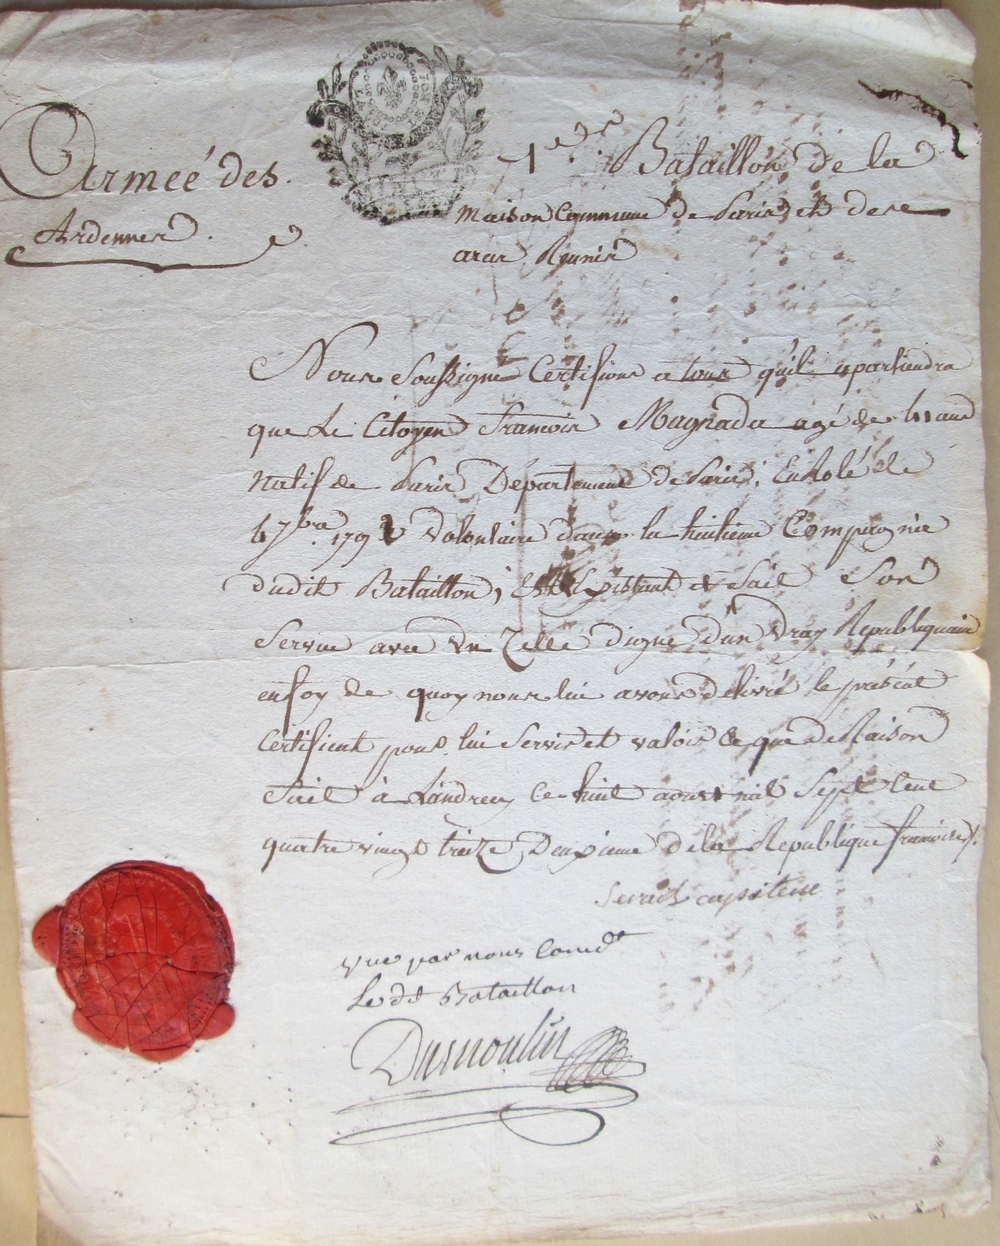 Armeé des
Ardennes
1er Bataillon de la
Maison Commune de Paris et de se
arer Reunis
Nous Soussigne Certifions a tous qu'il apartiendra
que Le Citoyen francois Magnada agé de 41 ans
Natif de Paris Departement de Paris, Enrolé le
4 7bre 1792 Volontaire dans la huitieme Compagnie
dudit Bataillon, Est Existant et fait Son
Service avec un Zelle digne d'un Vray Republiquain
enfoy de quoy nous lui avons délivré le présent
Certificat pour lui Servir et valoir Ce que de Raison
fait à Landrecy Ce huit aoust mil Sept Cent
quatre vingt treize Deuxieme de la Republique francoise
capitene
vue par nous Comdt
Le dt Bataillon
Dumoulin